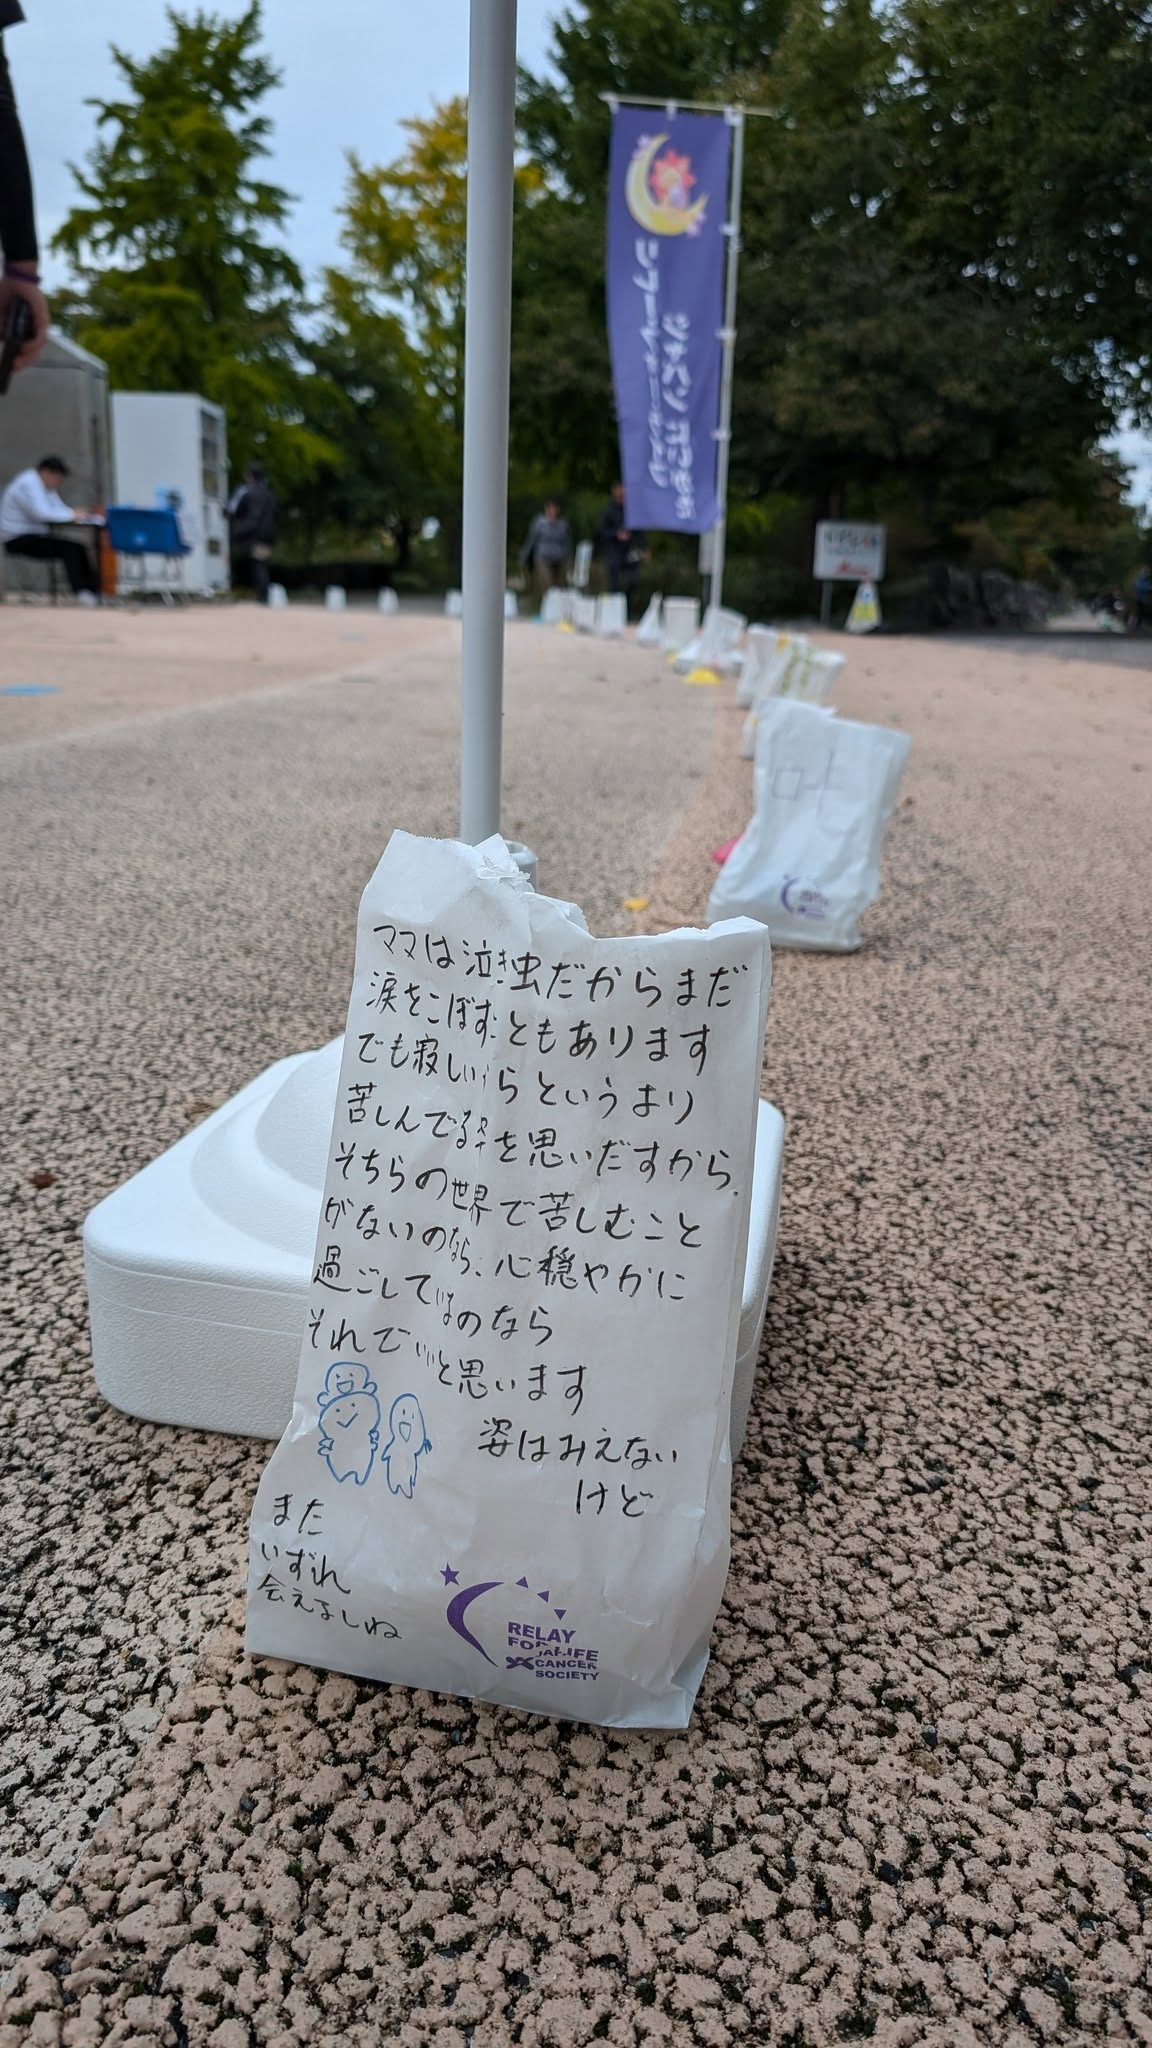 ママは泣き虫だからまだ
涙をこぼすこともあります
でも寂しいからというより
苦しんでる姿を思いだすから、
そちらの世界で苦しむこと
がないのなら、心穏やかに
過ごしているのなら
それでいいと思います
姿はみえない
けど
また
いずれ
会えましね
RELAY
FOR LIFE
JAPAN
CANCER
SOCIETY
リレー・フォー・ライフ
ジャパン